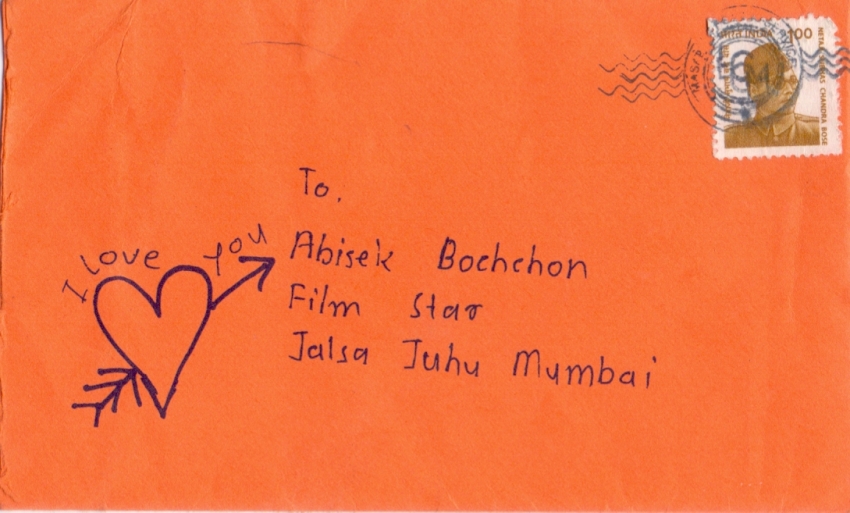 भारत INDIA 100
NETAJI SUBHAS CHANDRA BOSE
To.
I love you
Abisek Bochchon
Film Star
Jalsa Juhu Mumbai